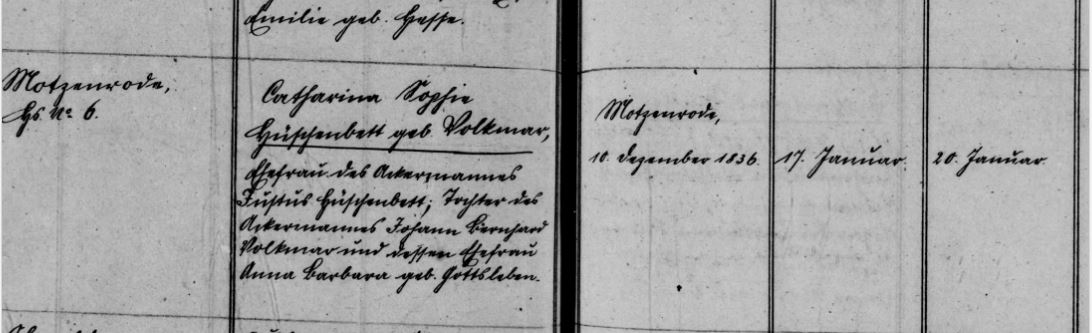 Emilie geb. Hesse.
Motzenrode,
Hs. No 6.
Catharina Sophie
Hüschenbett geb. Volkmar,
Ehefrau des Ackermannes
Justus Hüschenbett; Tochter des
Ackermannes Johann Bernhard
Volkmar und dessen Ehefrau
Anna Barbara geb. Gottsleben.
Motzenrode,
10. Dezember 1836.
17. Januar.
20. Januar.